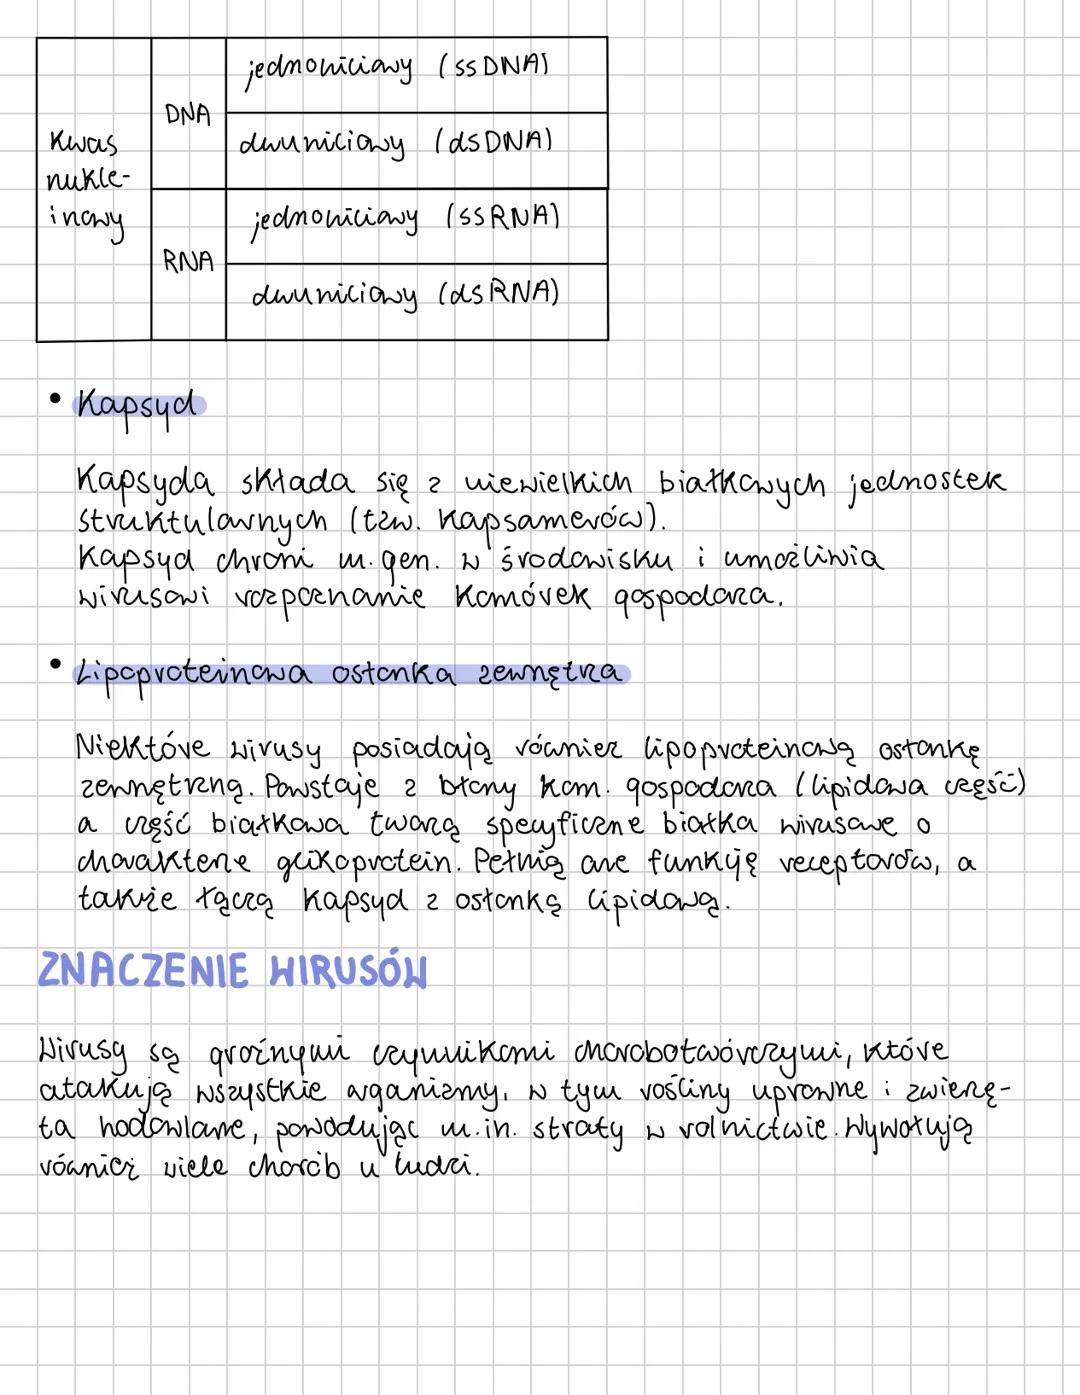 Kwas
nukle-
inowy
DNA
jednoniciowy (ssDNA)
dwuniciowy (dsDNA)
RNA
jednoniciowy (ssRNA)
dwuniciowy (dsRNA)
• Kapsyd
Kapsyda składa się z niewielkich białkowych jednostek
strukturalnych (tzw. kapsamerów).
Kapsyd chroni m.gen. w środowisku i umożliwia
wirusowi rozpoznanie komórek gospodarza.
• Lipoproteinowa osłonka zewnętrza
Niektóre wirusy posiadają również lipoproteinową osłonkę
zewnętrzną. Powstaje z błony kom. gospodarza (lipidowa część)
a część białkowa tworzą specyficzne białka wirusowe o
charakterze glikoprotein. Pełnią one funkcję receptorów, a
także łączą kapsyd z osłonką lipidową.
ZNACZENIE WIRUSÓW
Wirusy są groźnymi czynnikami chorobotwórczymi, które
atakują wszystkie organizmy, w tym rośliny uprawne i zwierzę-
ta hodowlane, powodując m.in. straty w rolnictwie. Wywołują
również wiele chorób u ludzi.